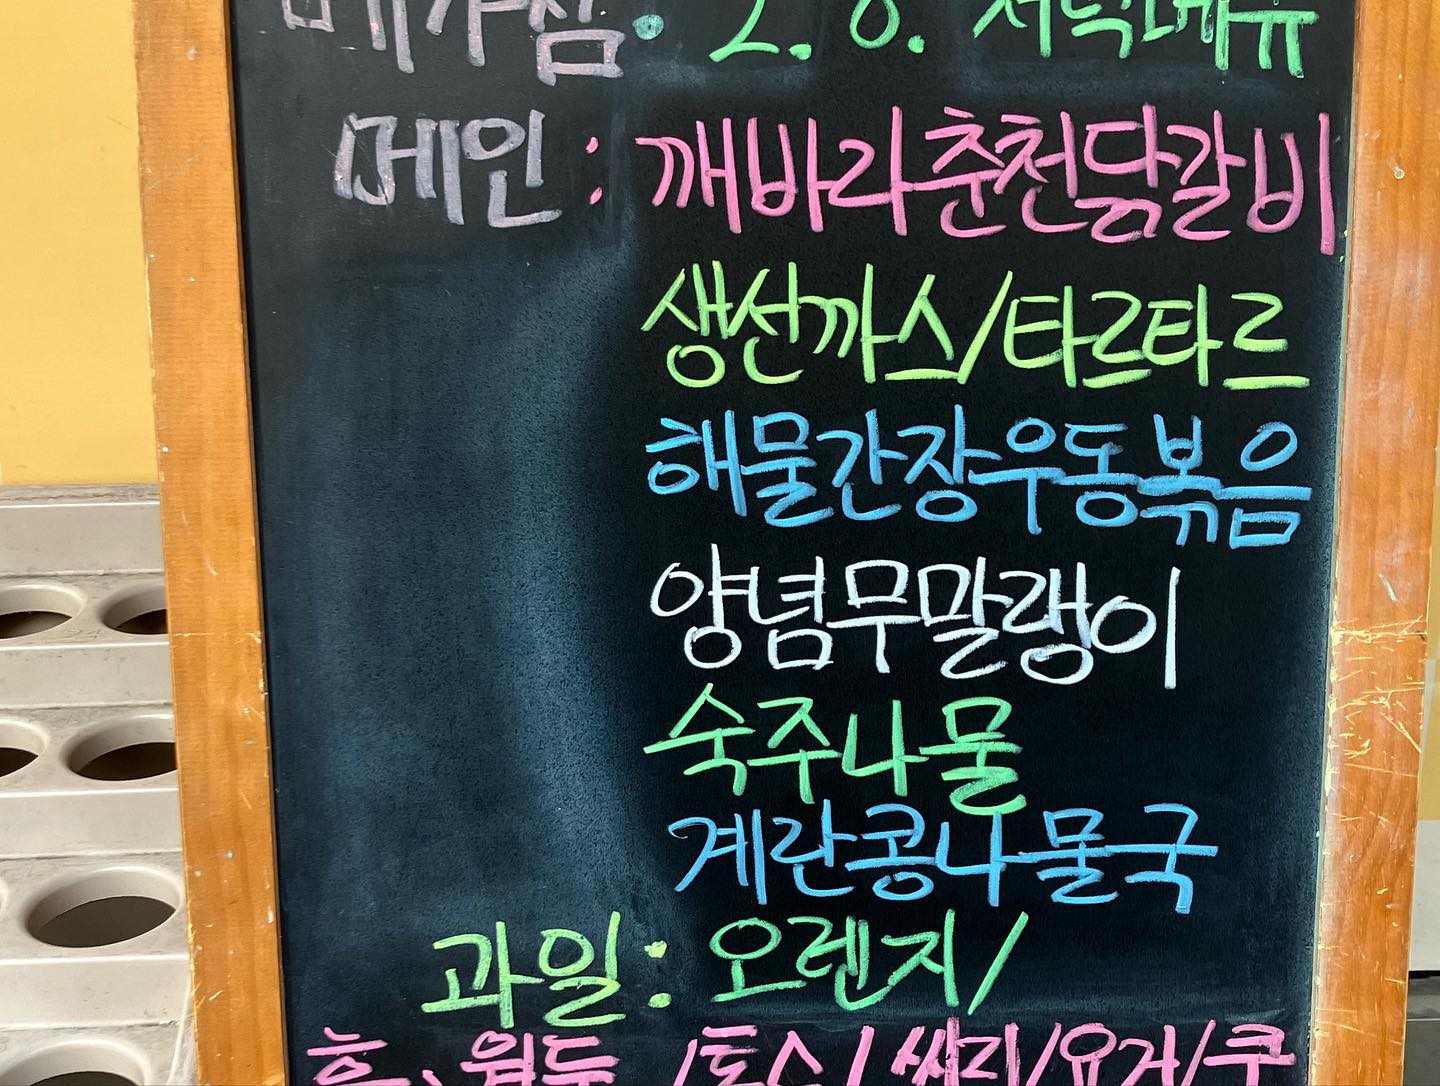 2. 8. 저녁메뉴
메인 : 깨바라춘천닭갈비
생선까스/타르타르
해물간장우동볶음
양념무말랭이
숙주나물
계란콩나물국
과일 : 오렌지/
/토스/